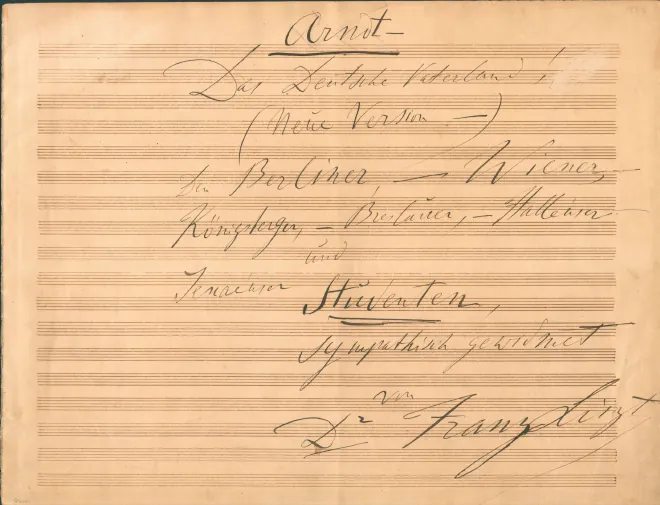 Arndt —
Das Deutsche Vaterland!
(Neue Version —)
den Berliner, — Wiener, —
Königsberger, — Breslauer, — Hallenser
und
Jenaenser Studenten,
sympathisch gewidmet
von
Dr Franz Liszt